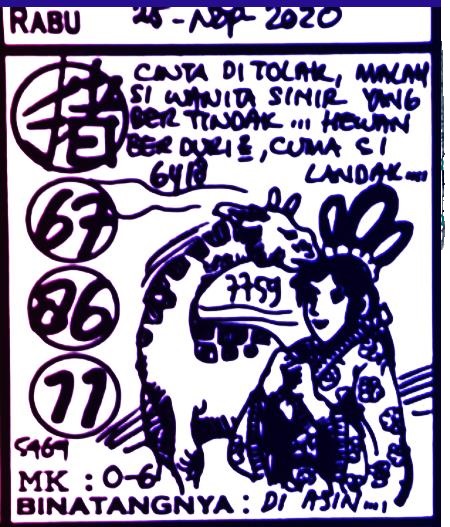 RABU 25-NOP 2020
猪
CINTA DI TOLAK, MALAH
SI WANITA SIHIR YANG
BERTINDAK ... HEWAN
BER DURI², CUMA SI
LANDAK....
67
86
11
7759
MK : 0-6
BINATANGNYA : DI ASIN...